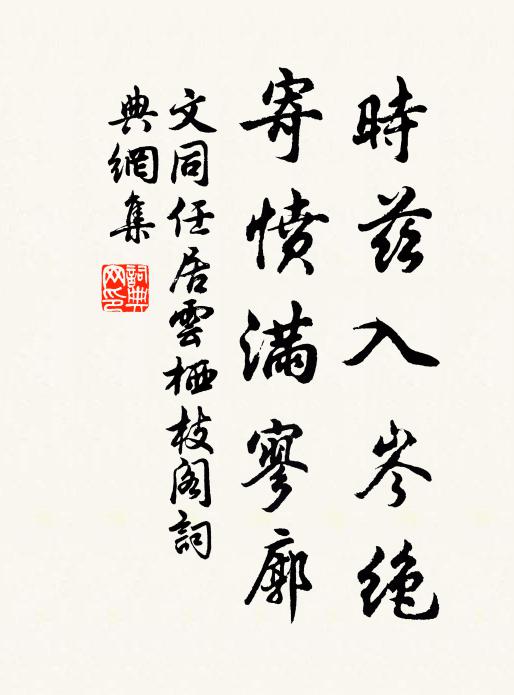 時茲入岑絶
寄憤滿寥廓
文同任居雲栖枝阁詞
典網集
詞典網印